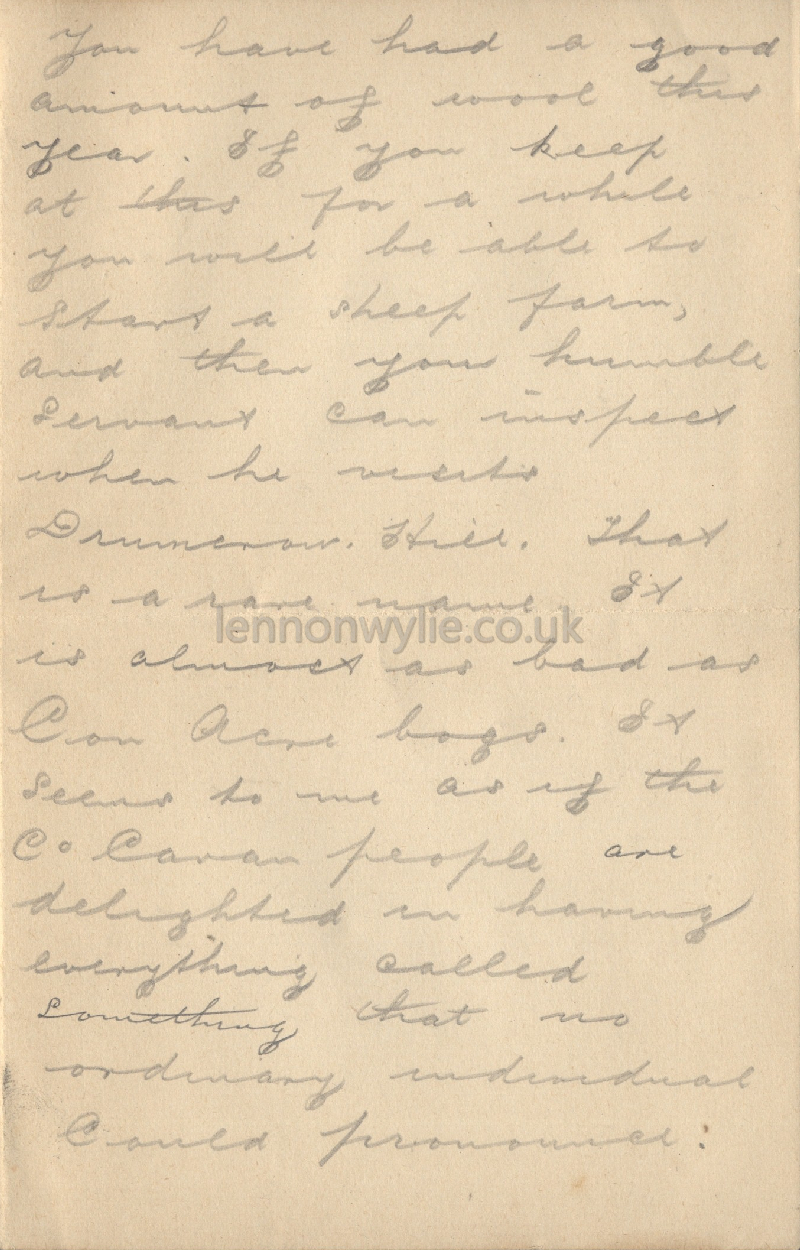 You have had a good
amount of wool this
year. If you keep
at this for a while
you will be able to
start a sheep farm,
and then your humble
servant can inspect
when he visits
Drumcrow. Hill. That
is a rare name It
lennonwylie.co.uk
is almost as bad as
Con Acre bogs. It
seems to me as if the
Co Cavan people are
delighted in having
everything called
something that no
ordinary individual
Could pronounce: